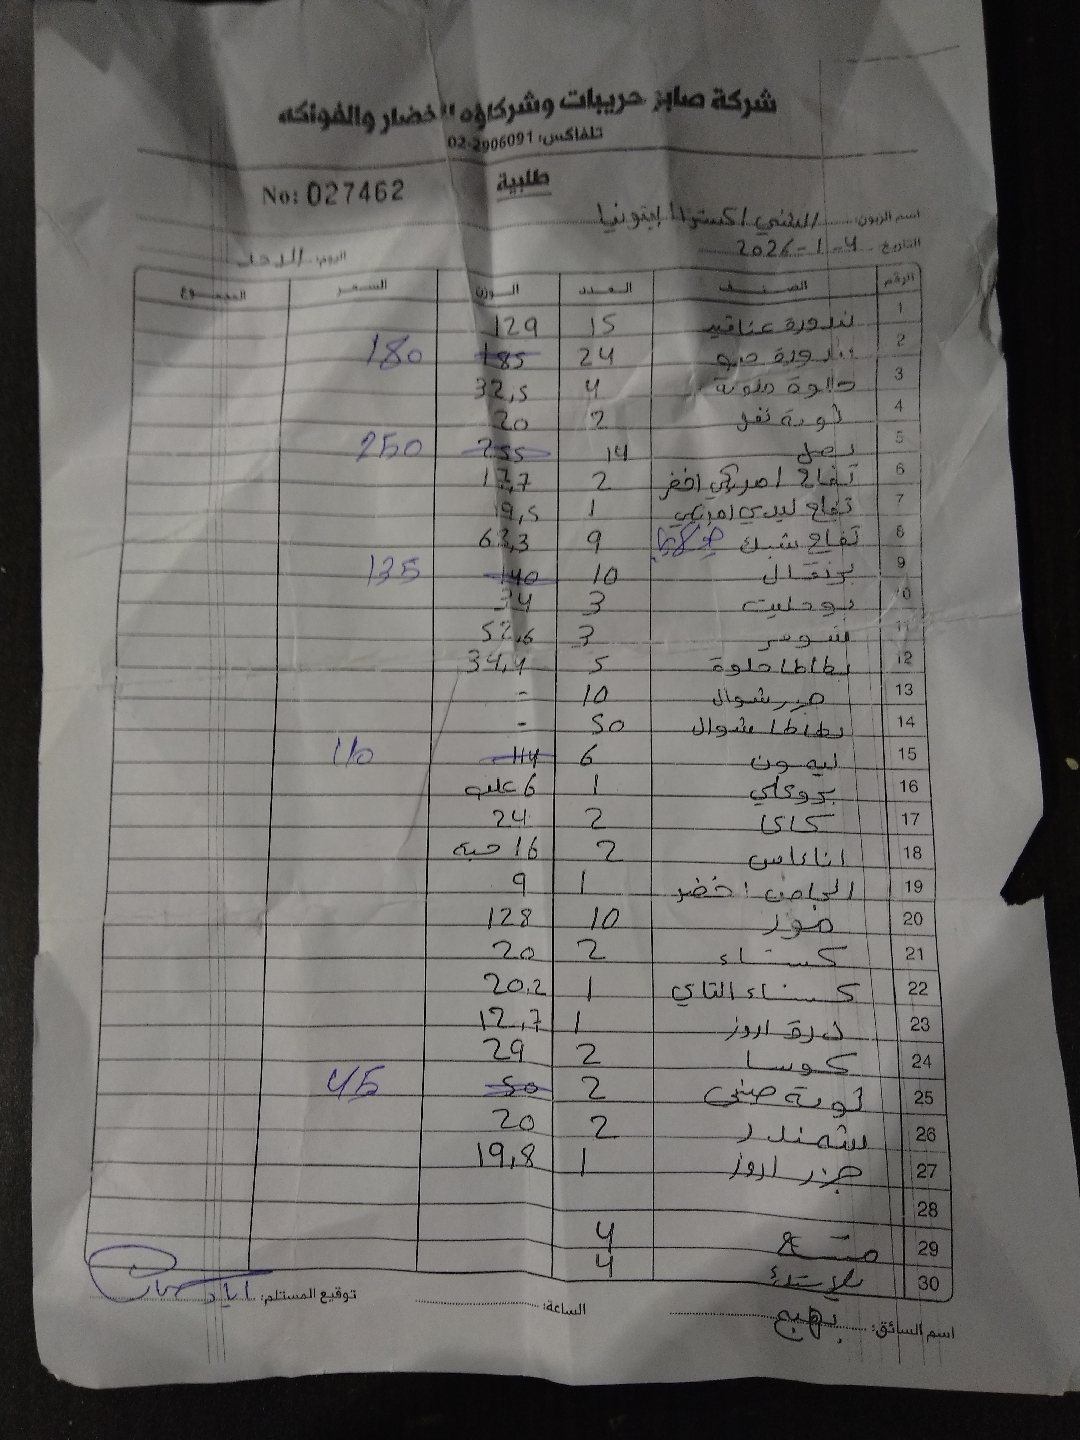 شركة صابر حريبات وشركاؤه للخضار والفواكه
تلفاكس: 02-2906091
طلبية
No: 027462
اسم الزبون: الشني اكسترا ايتونيا
التاريخ 4-1-2026 اليوم: الاحد
الرقم الصنف العدد الوزن السعر المجموع
1 بندورة عناقيد 15 129
2 بندورة حبو 24 185 180
3 حلوة ملونة 4 32,5
4 ثومة نفل 2 20
5 بصل 14 255 250
6 تفاح امريكي اخضر 2 17,7
7 تفاح ليدي امريكي 1 19,5
8 تفاح شبك 9 63,3
9 برتقال 10 140 135
10 بوملیت 3 34
11 شومر 3 52,6
12 بطاطا حلوة 5 34,4
13 جزر شوال 10 -
14 بطاطا شوال 50 -
15 ليمون 6 114 110
16 بروكلي 1 6 علب
17 كاكا 2 24
18 اناناس 2 16 حبه
19 اجاص اخضر 1 9
20 موز 10 128
21 كستناء 2 20
22 كستناء التاي 1 20,2
23 ذرة اروز 1 12,7
24 كوسا 2 29
25 ثومة صيني 2 50 45
26 شمندر 2 20
27 جزر اروز 1 19,8
28
29 4
30 4
اسم السائق: بهيج الساعة: توقيع المستلم: اياد